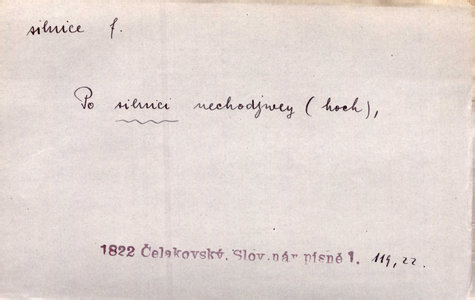 silnice f.
Po silnici nechodjwey (hoch),
1822 Čelakovský. Slov.nár písně 1. 119, 22.